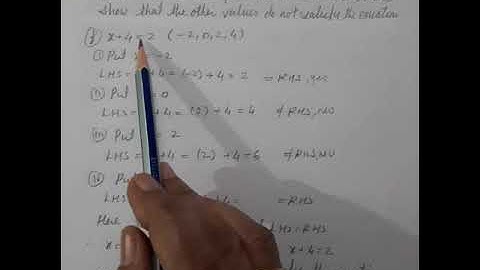 show that the other values do not satisfy the equation
(f) x+4=2 (-2,0,2,4)
(i) Put = -2
LHS = +4 = (-2)+4 = 2 = RHS, yes
(ii) Put = 0
LHS = +4 = (0) +4 = 4 ≠ RHS, NO
(iii) Put = 2
LHS = +4 = (2) +4 = 6 ≠ RHS, NO
(iv) Put
LHS = +4 = = RHS
Here LHS=RHS
∴ x= x+4=2
the equation